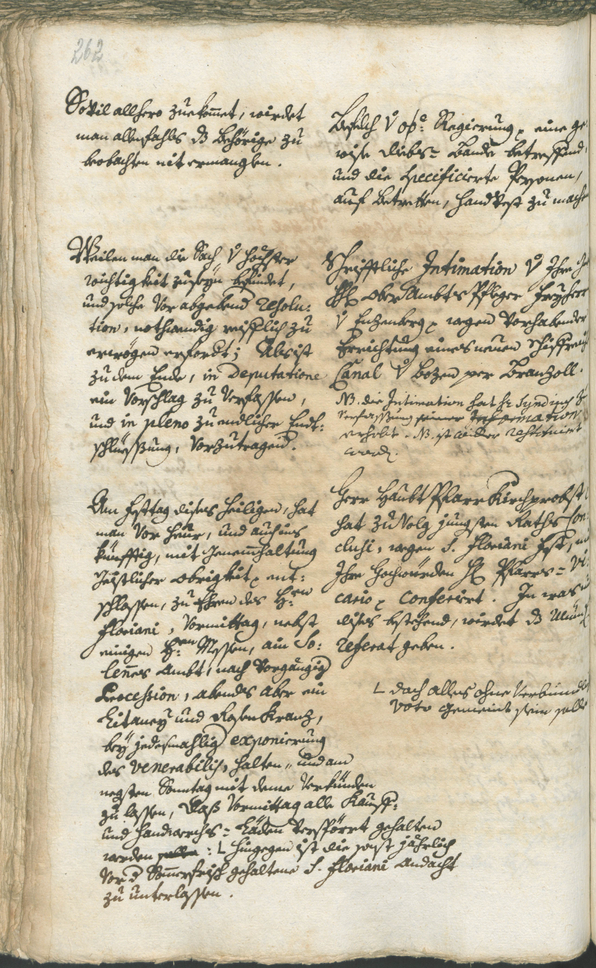 262
Sovil allhero zuekommet, wirdet
man allenfahls ds behörige zu
beobachten nit ermanglen.
Weilen man die Sach v höchster
wichtigkeit zuseyn befindet,
und solche vor abgebend resolu-
tion, nothwendig reifflich zu
erwögen erfordt; Als ist
zu dem Ende, in Deputatione
ein Vorschlag zu verfassen,
und in pleno zu endlicher Ent-
schlüessung, vorzutragen.
Am Festtag dises heiligen, hat
man vor heür, und auch ins
künfftig, mit Genemhaltung
Geistlicher obrigkeit, ent-
schlossen, zu Ehren des H:
Floriani, Vormittag, nebst
einigen H: Messen, ain So-
lennes Ambt, nach vorgängig
Procession, abends aber ein
Litaney und Rosen Kranz,
bey jedesmahlig exponierung
des Venerabilis, halten, und am
negsten Sonntag mit deme verkünden
zu lassen, daß Vormittag alle Kauff-
und Handwerchs-Läden verspörrt gehalten
werden : hingegen ist die sonst jährlich
vor d gehaltene S. Floriani Andacht
zu unterlassen.
Befelch v o:ö: Regierung, eine ge
wise Diebs-Bande betreffend,
und die specificierte Personen,
auf betretten, handvest zu mache
Schrifftliche Intimation v Ihro
Ober Ambts Pfleger Freyherr
v Enzenberg wegen vorhabender
Errichtung eines neuen Schiffreich
Canal v Bozen per Branzoll.
NB. die Intimation hat H: Syndicus
verfassung
erholet. NB. ist wider restituiert
word.
Herr Haubt Pfarr Kirchprobst
hat zu Volg jüngsten Raths Con
clusi, wegen S. Floriani Fest,
Ihro Hochwürden H: Pfarrs-Vi
cario conferirt. In was
dises bestehend, wirdet ds
Referat geben.
doch alles ohne Verbund
Voto gemeint sein solle